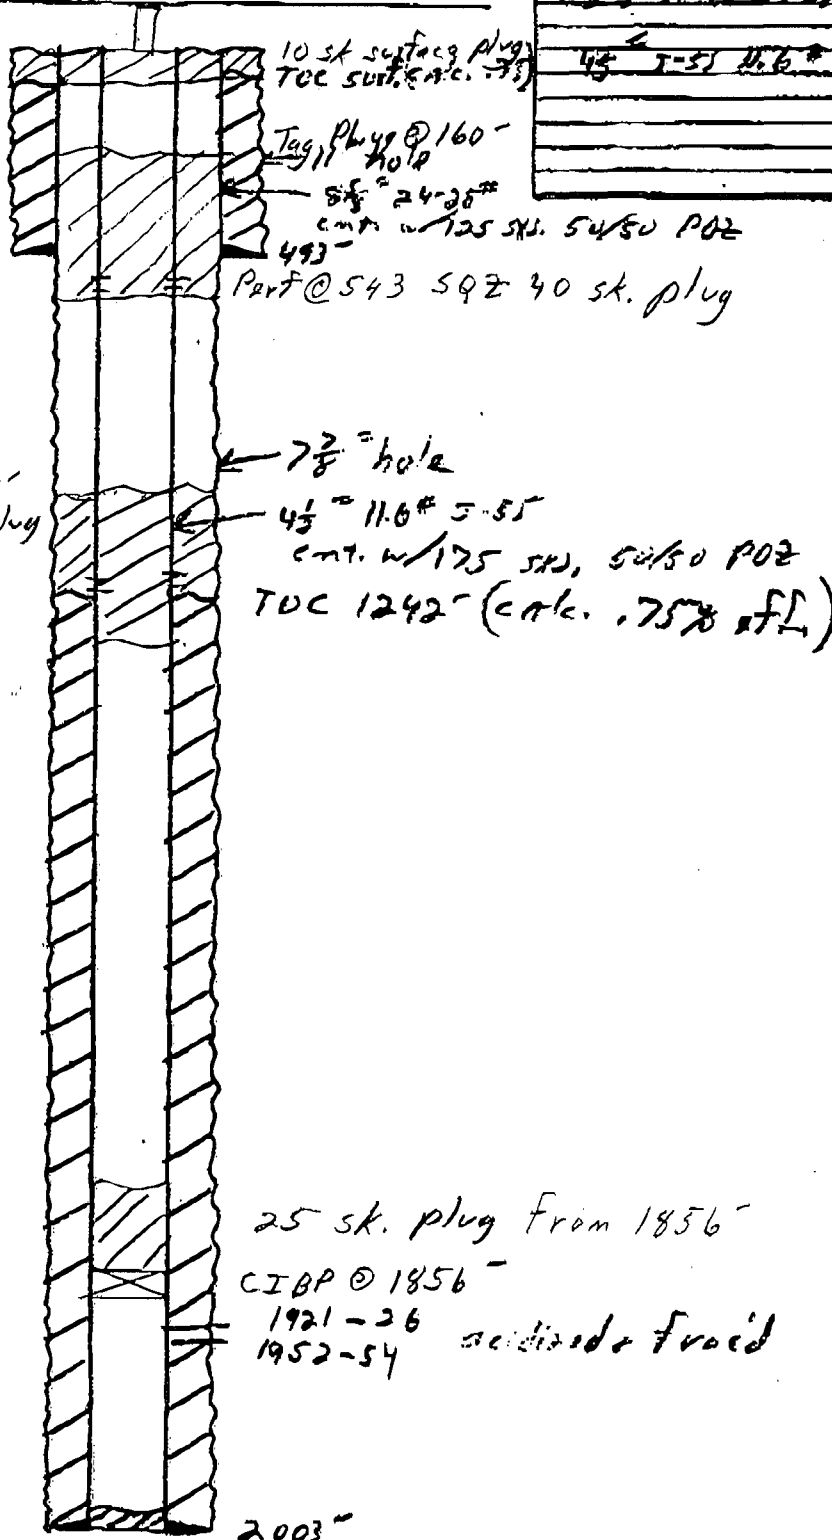 10 sk surface plug
TOC surf. (calc. .75)
4½ J-55 11.6#
Tag Plugg @ 160'
11" hole
8⅝" 24-28#
cmt. w/125 sxs. 50/50 POZ
493'
Perf @ 543 SQZ 40 sk. plug
7⅞" hole
plug
4½" 11.6# J-55
cmt. w/175 sxs, 50/50 POZ
TOC 1242' (calc. .75% eff.)
25 sk. plug from 1856'
CIBP @ 1856'
1921-26
1952-54 acidized & frac'd
2003'